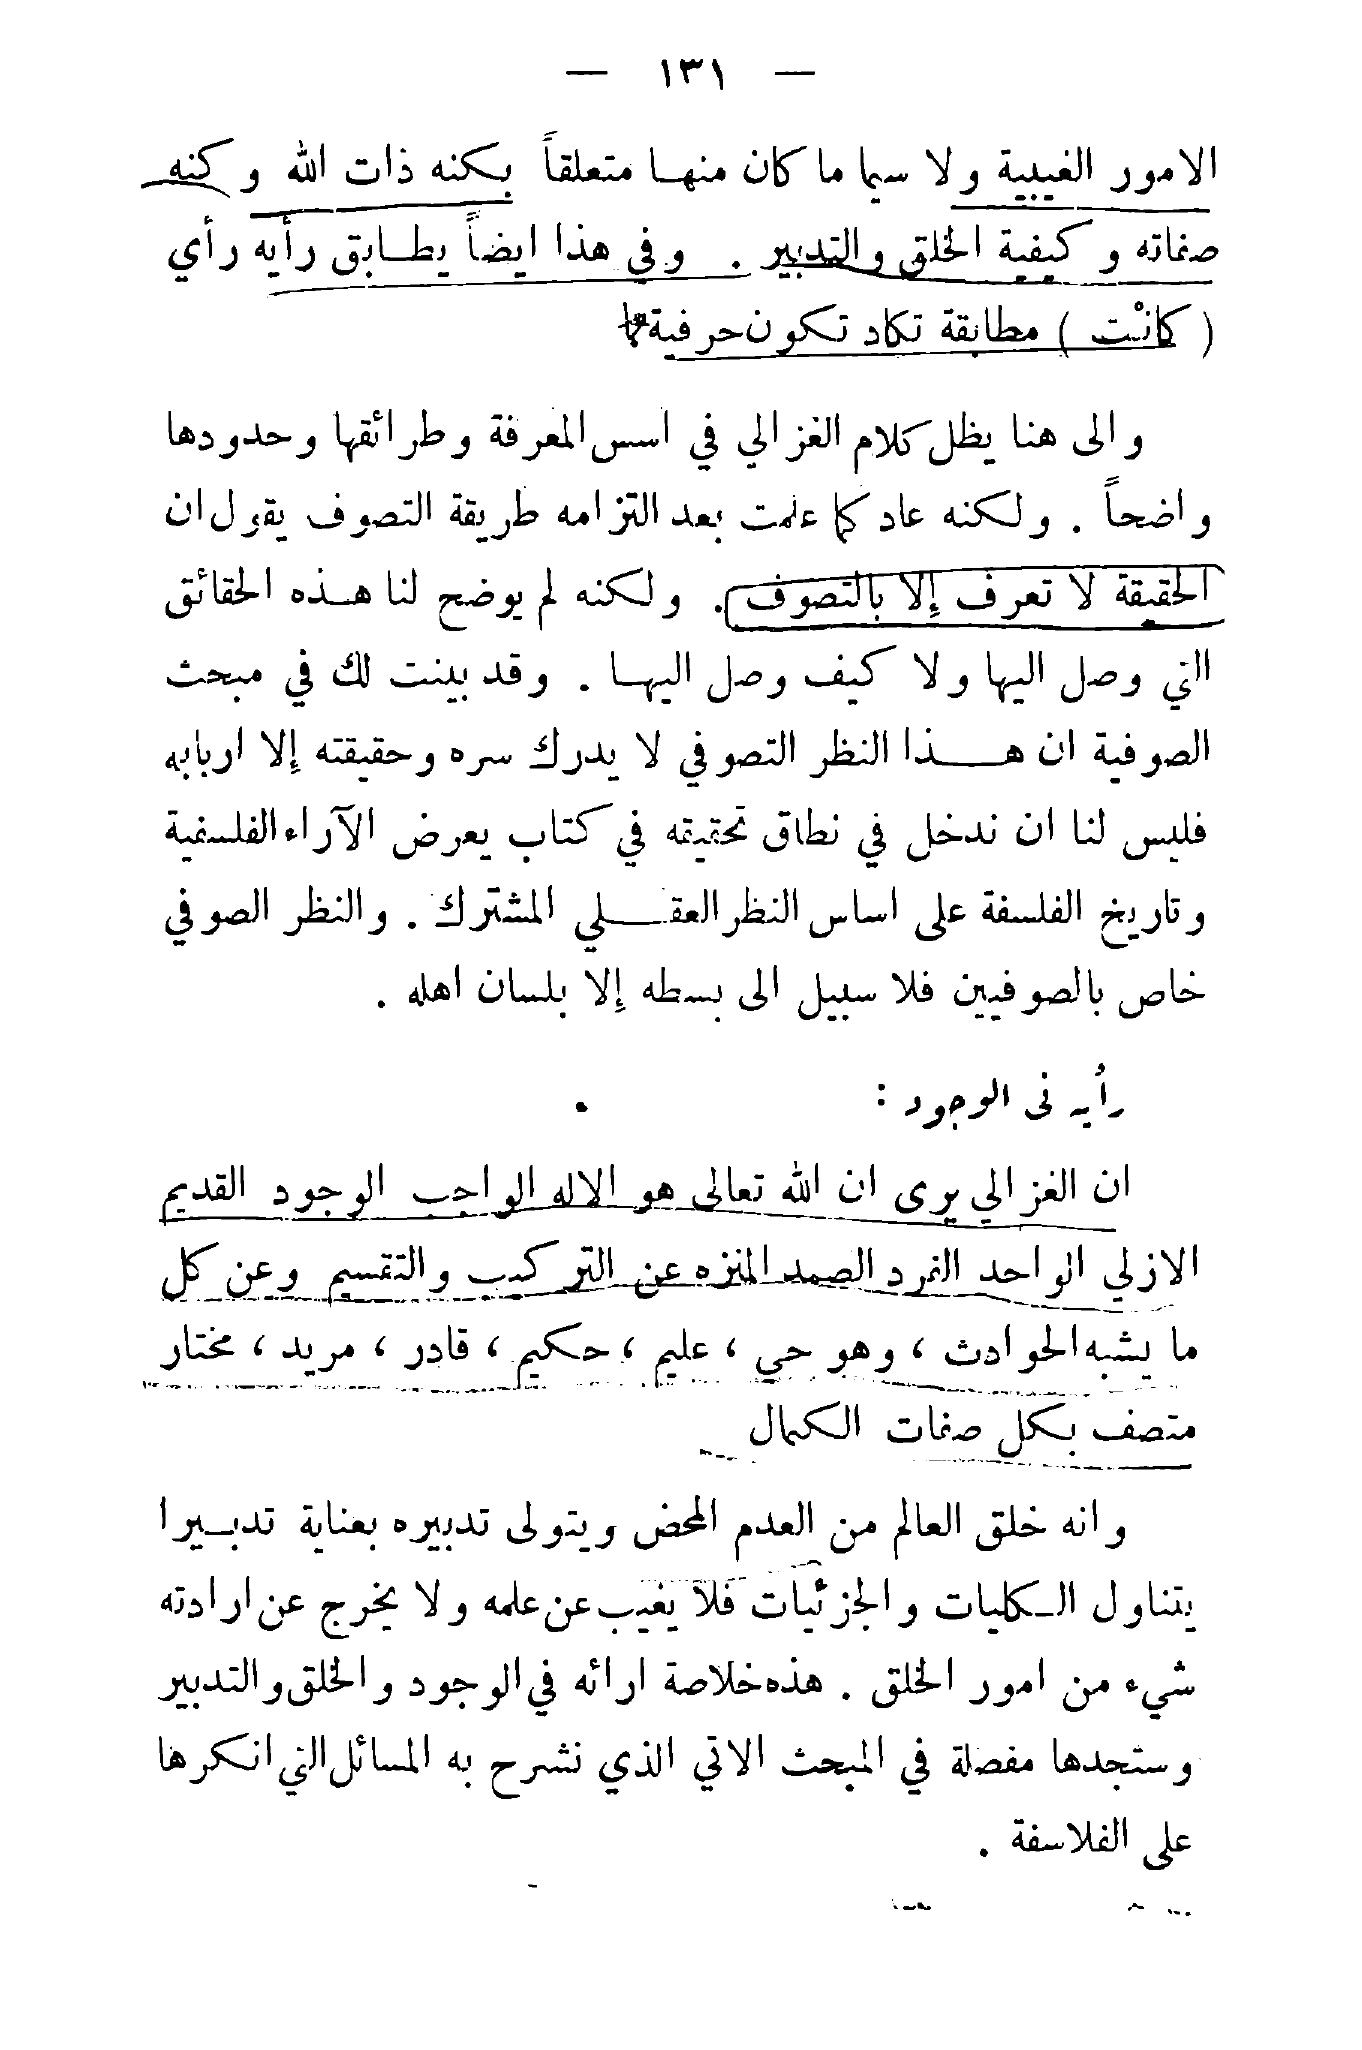 — ١٣١ —
الامور الغيبية ولا سيما ما كان منها متعلقاً بكنه ذات الله وكنه
صفاته وكيفية الخلق والتدبير . وفي هذا ايضاً يطابق رأيه رأي
( كانْت ) مطابقة تكاد تكون حرفية
والى هنا يظل كلام الغزالي في اسس المعرفة وطرائقها وحدودها
واضحاً . ولكنه عاد كما علمت بعد التزامه طريقة التصوف يقول ان
الحقيقة لا تعرف إلا بالتصوف . ولكنه لم يوضح لنا هذه الحقائق
التي وصل اليها ولا كيف وصل اليها . وقد بينت لك في مبحث
الصوفية ان هذا النظر التصوفي لا يدرك سره وحقيقته إلا اربابه
فليس لنا ان ندخل في نطاق تحقيقه في كتاب يعرض الآراء الفلسفية
وتاريخ الفلسفة على اساس النظر العقلي المشترك . والنظر الصوفي
خاص بالصوفيين فلا سبيل الى بسطه إلا بلسان اهله .
رأيه في الوجود :
ان الغزالي يرى ان الله تعالى هو الاله الواجب الوجود القديم
الازلي الواحد الفرد الصمد المنزه عن التركيب والتقسيم وعن كل
ما يشبه الحوادث ، وهو حي ، عليم ، حكيم ، قادر ، مريد ، مختار
متصف بكل صفات الكمال
وانه خلق العالم من العدم المحض ويتولى تدبيره بعناية تدبيرا
يتناول الكليات والجزئيات فلا يغيب عن علمه ولا يخرج عن ارادته
شيء من امور الخلق . هذه خلاصة ارائه في الوجود والخلق والتدبير
وستجدها مفصلة في المبحث الاتي الذي نشرح به المسائل التي انكرها
على الفلاسفة .